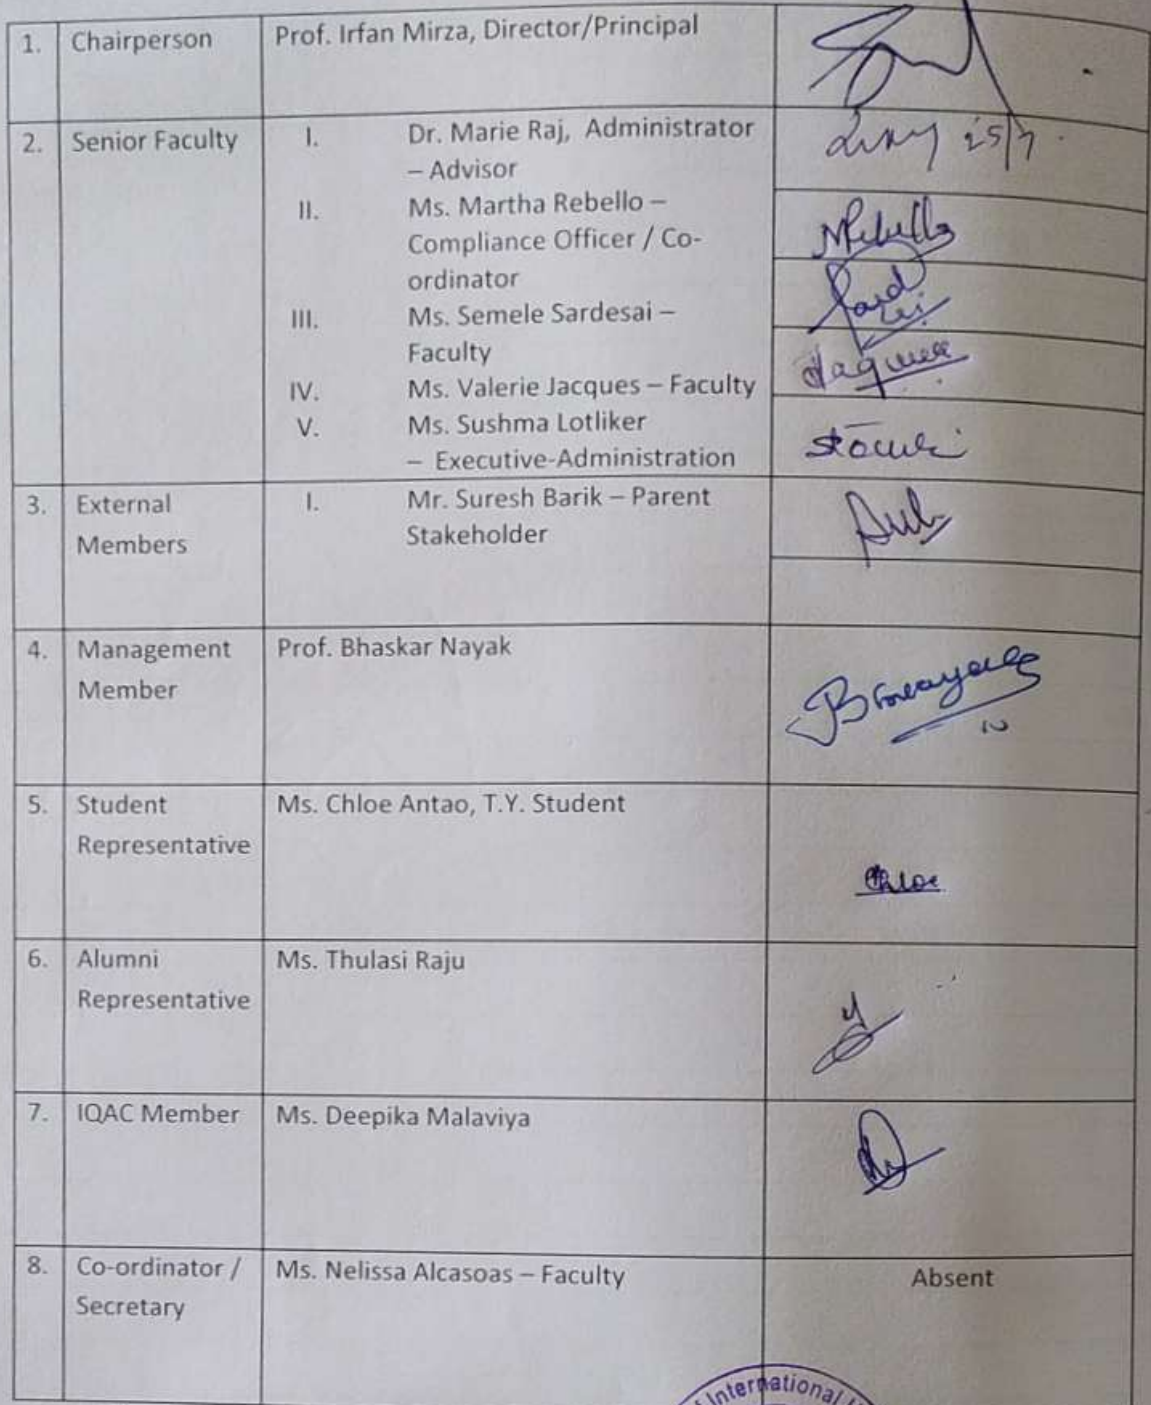 1. Chairperson Prof. Irfan Mirza, Director/Principal
2. Senior Faculty I. Dr. Marie Raj, Administrator
– Advisor
25/7
II. Ms. Martha Rebello –
Compliance Officer / Co-
ordinator
MRebello
III. Ms. Semele Sardesai –
Faculty
IV. Ms. Valerie Jacques – Faculty
Jacques
V. Ms. Sushma Lotliker
– Executive-Administration
3. External
Members
I. Mr. Suresh Barik – Parent
Stakeholder
4. Management
Member
Prof. Bhaskar Nayak
5. Student
Representative
Ms. Chloe Antao, T.Y. Student
Chloe
6. Alumni
Representative
Ms. Thulasi Raju
7. IQAC Member Ms. Deepika Malaviya
8. Co-ordinator /
Secretary
Ms. Nelissa Alcasoas – Faculty Absent
International